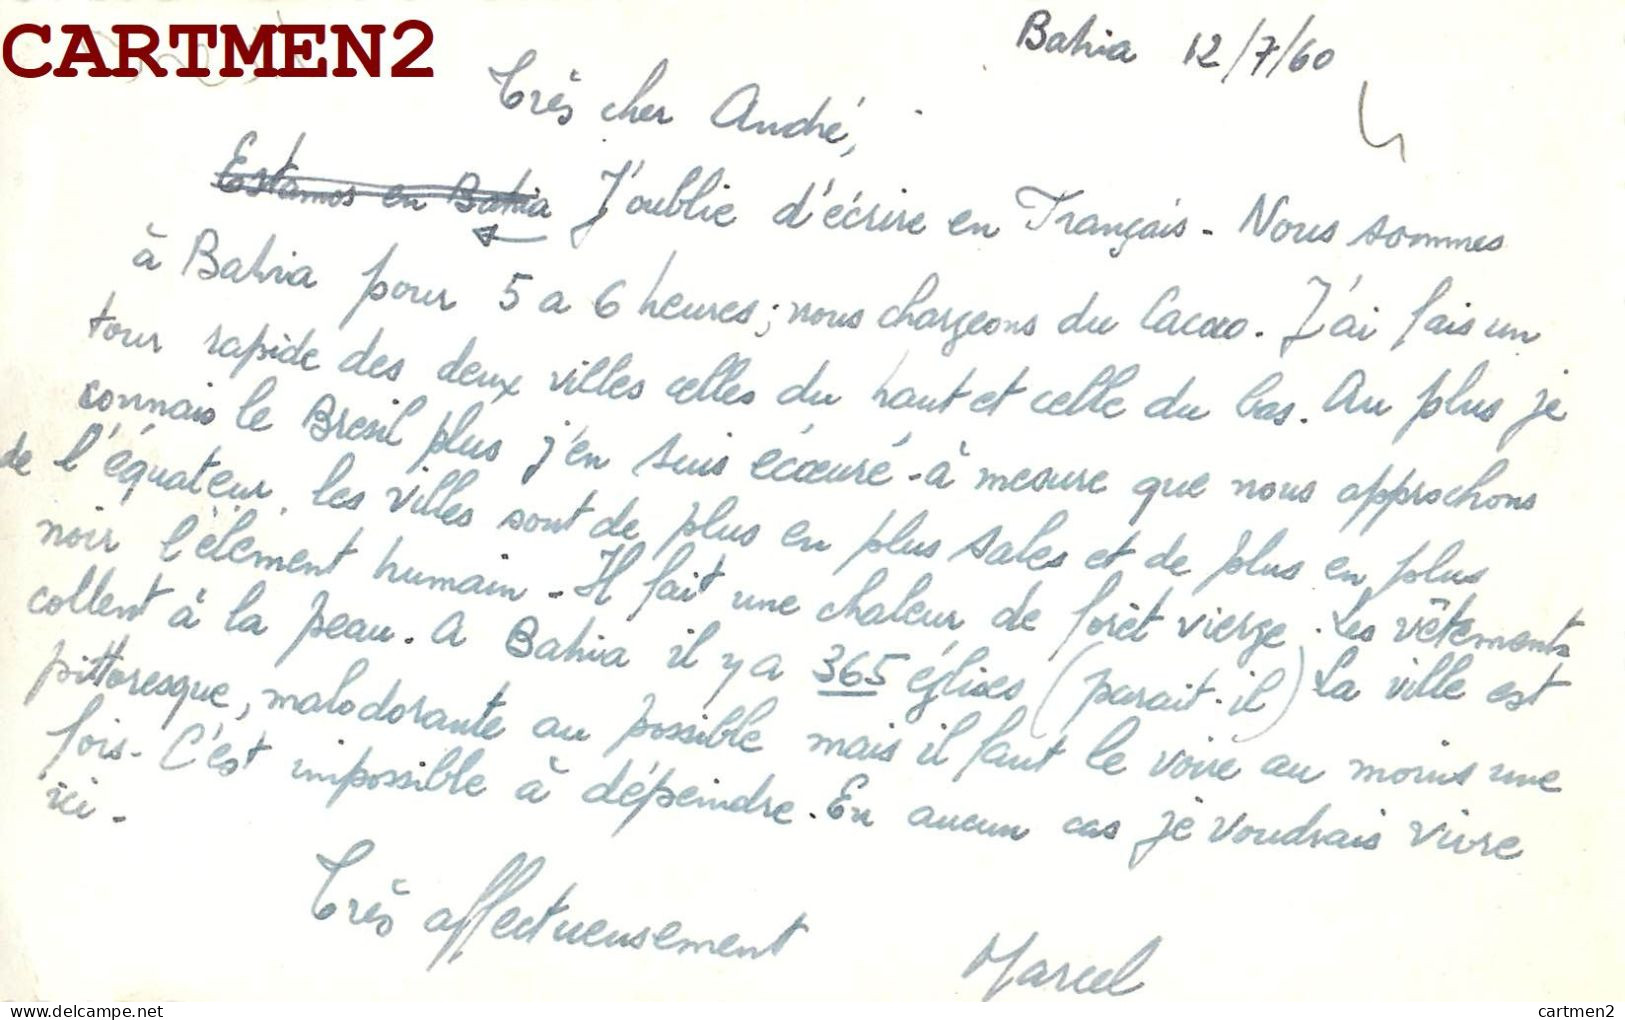 CARTMEN2
Bahia 12/7/60
Très cher André,
Estamos en Bahia J'oublie d'écrire en Français - Nous sommes
à Bahia pour 5 a 6 heures; nous chargeons du Cacao. J'ai fais un
tour rapide des deux villes celles du haut et celle du bas. Au plus je
connais le Bresil plus j'en suis écœuré - à mesure que nous approchons
de l'équateur, les villes sont de plus en plus sales et de plus en plus
noir l'élement humain - Il fait une chaleur de forêt vierge. Les vêtements
collent à la peau. A Bahia il y a 365 églises (parait-il) La ville est
pittoresque, malodorante au possible mais il faut le voire au moins une
fois - C'est impossible à dépeindre. En aucun cas je voudrais vivre
ici -
Très affectueusement
Marcel
cartmen2